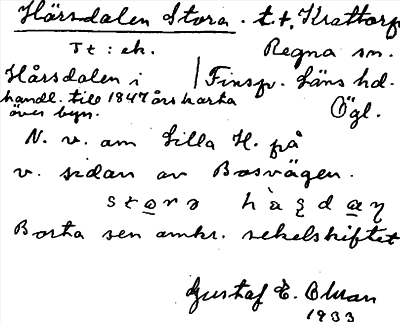 Härsdalen Stora. t.t. Krattorp
Tt: ek. Regna sn.
Hårsdalen i Finsp. läns hd.
handl. till 1847 års karta Ögl.
över byn.
N. v. om Lilla H. på
v. sidan av Bosvägen.
Borta sen omkr. sekelskiftet
Gustaf E.
1933